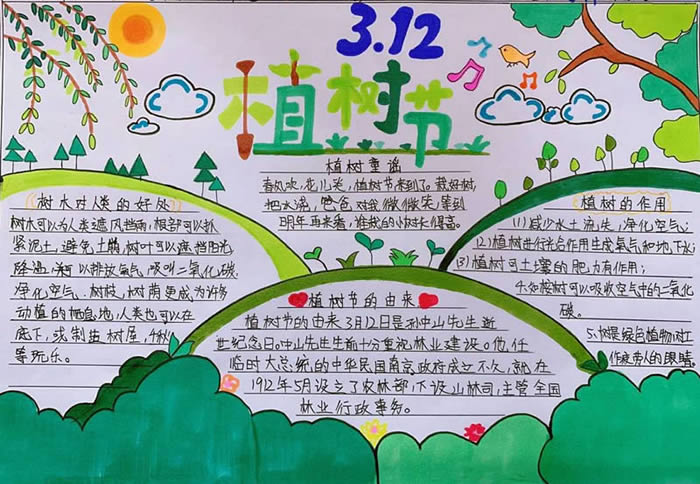 3.12
植树节
植树童谣
春风吹，花儿笑，植树节来到了。栽好树，
把水浇，爸爸对我微微笑，等到
明年再来看，谁栽的小树长得高。
树木对人类的好处
树木可以为人类遮风挡雨，根部可以抓
紧泥土，避免土崩，树叶可以遮挡阳光
降温，和以排放氧气，吸收二氧化碳
净化空气，树枝、树荫更成为许多
动植的栖息地，人类也可以在
底下，或制造树屋，千秋
等玩乐。
植树节的由来
植树节的由来3月12日是孙中山先生逝
世纪念日。中山先生生前十分重视林业建设。他任
临时大总统的中华民国南京政府成立不久，就在
1912年5月设立了农林部，下设山林司，主管全国
林业行政事务。
植树的作用
(1)减少水土流失，净化空气；
(2)植树进行光合作用生成氧气和地下水；
(3)植树可土壤的肥力有作用；
4.如桉树可以吸收空气中的一氧化
碳。
5.树是绿色植物对工
作疲劳人的眼睛